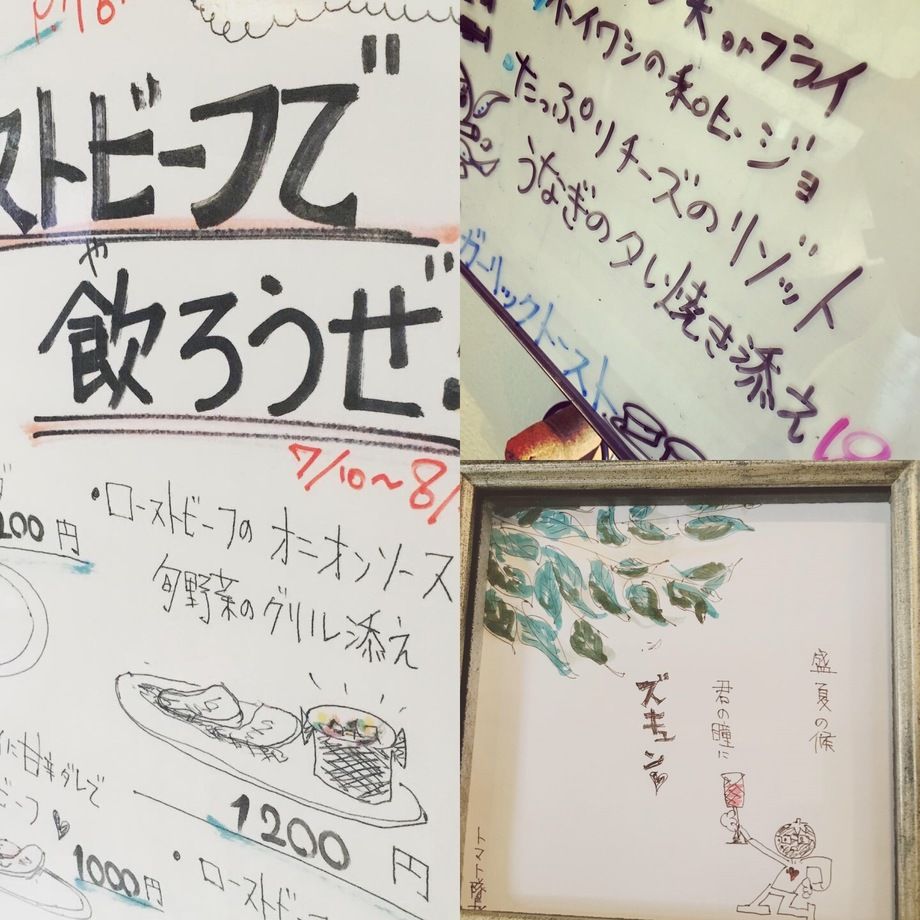 ストビーフで
や
飲ろうぜ
7/10〜8/
100円
・ローストビーフの オニオンソース
旬野菜のグリル添え
1200 円
に甘辛ダレで
ビーフ♡
1000円
・ローストビーフ
米 or フライ
ホイワシの
たっぷりチーズのリゾット
うなぎのタレ焼き添え
ガーリックトースト
盛夏の候
君の瞳に
ズキュン♡
トマト隊長